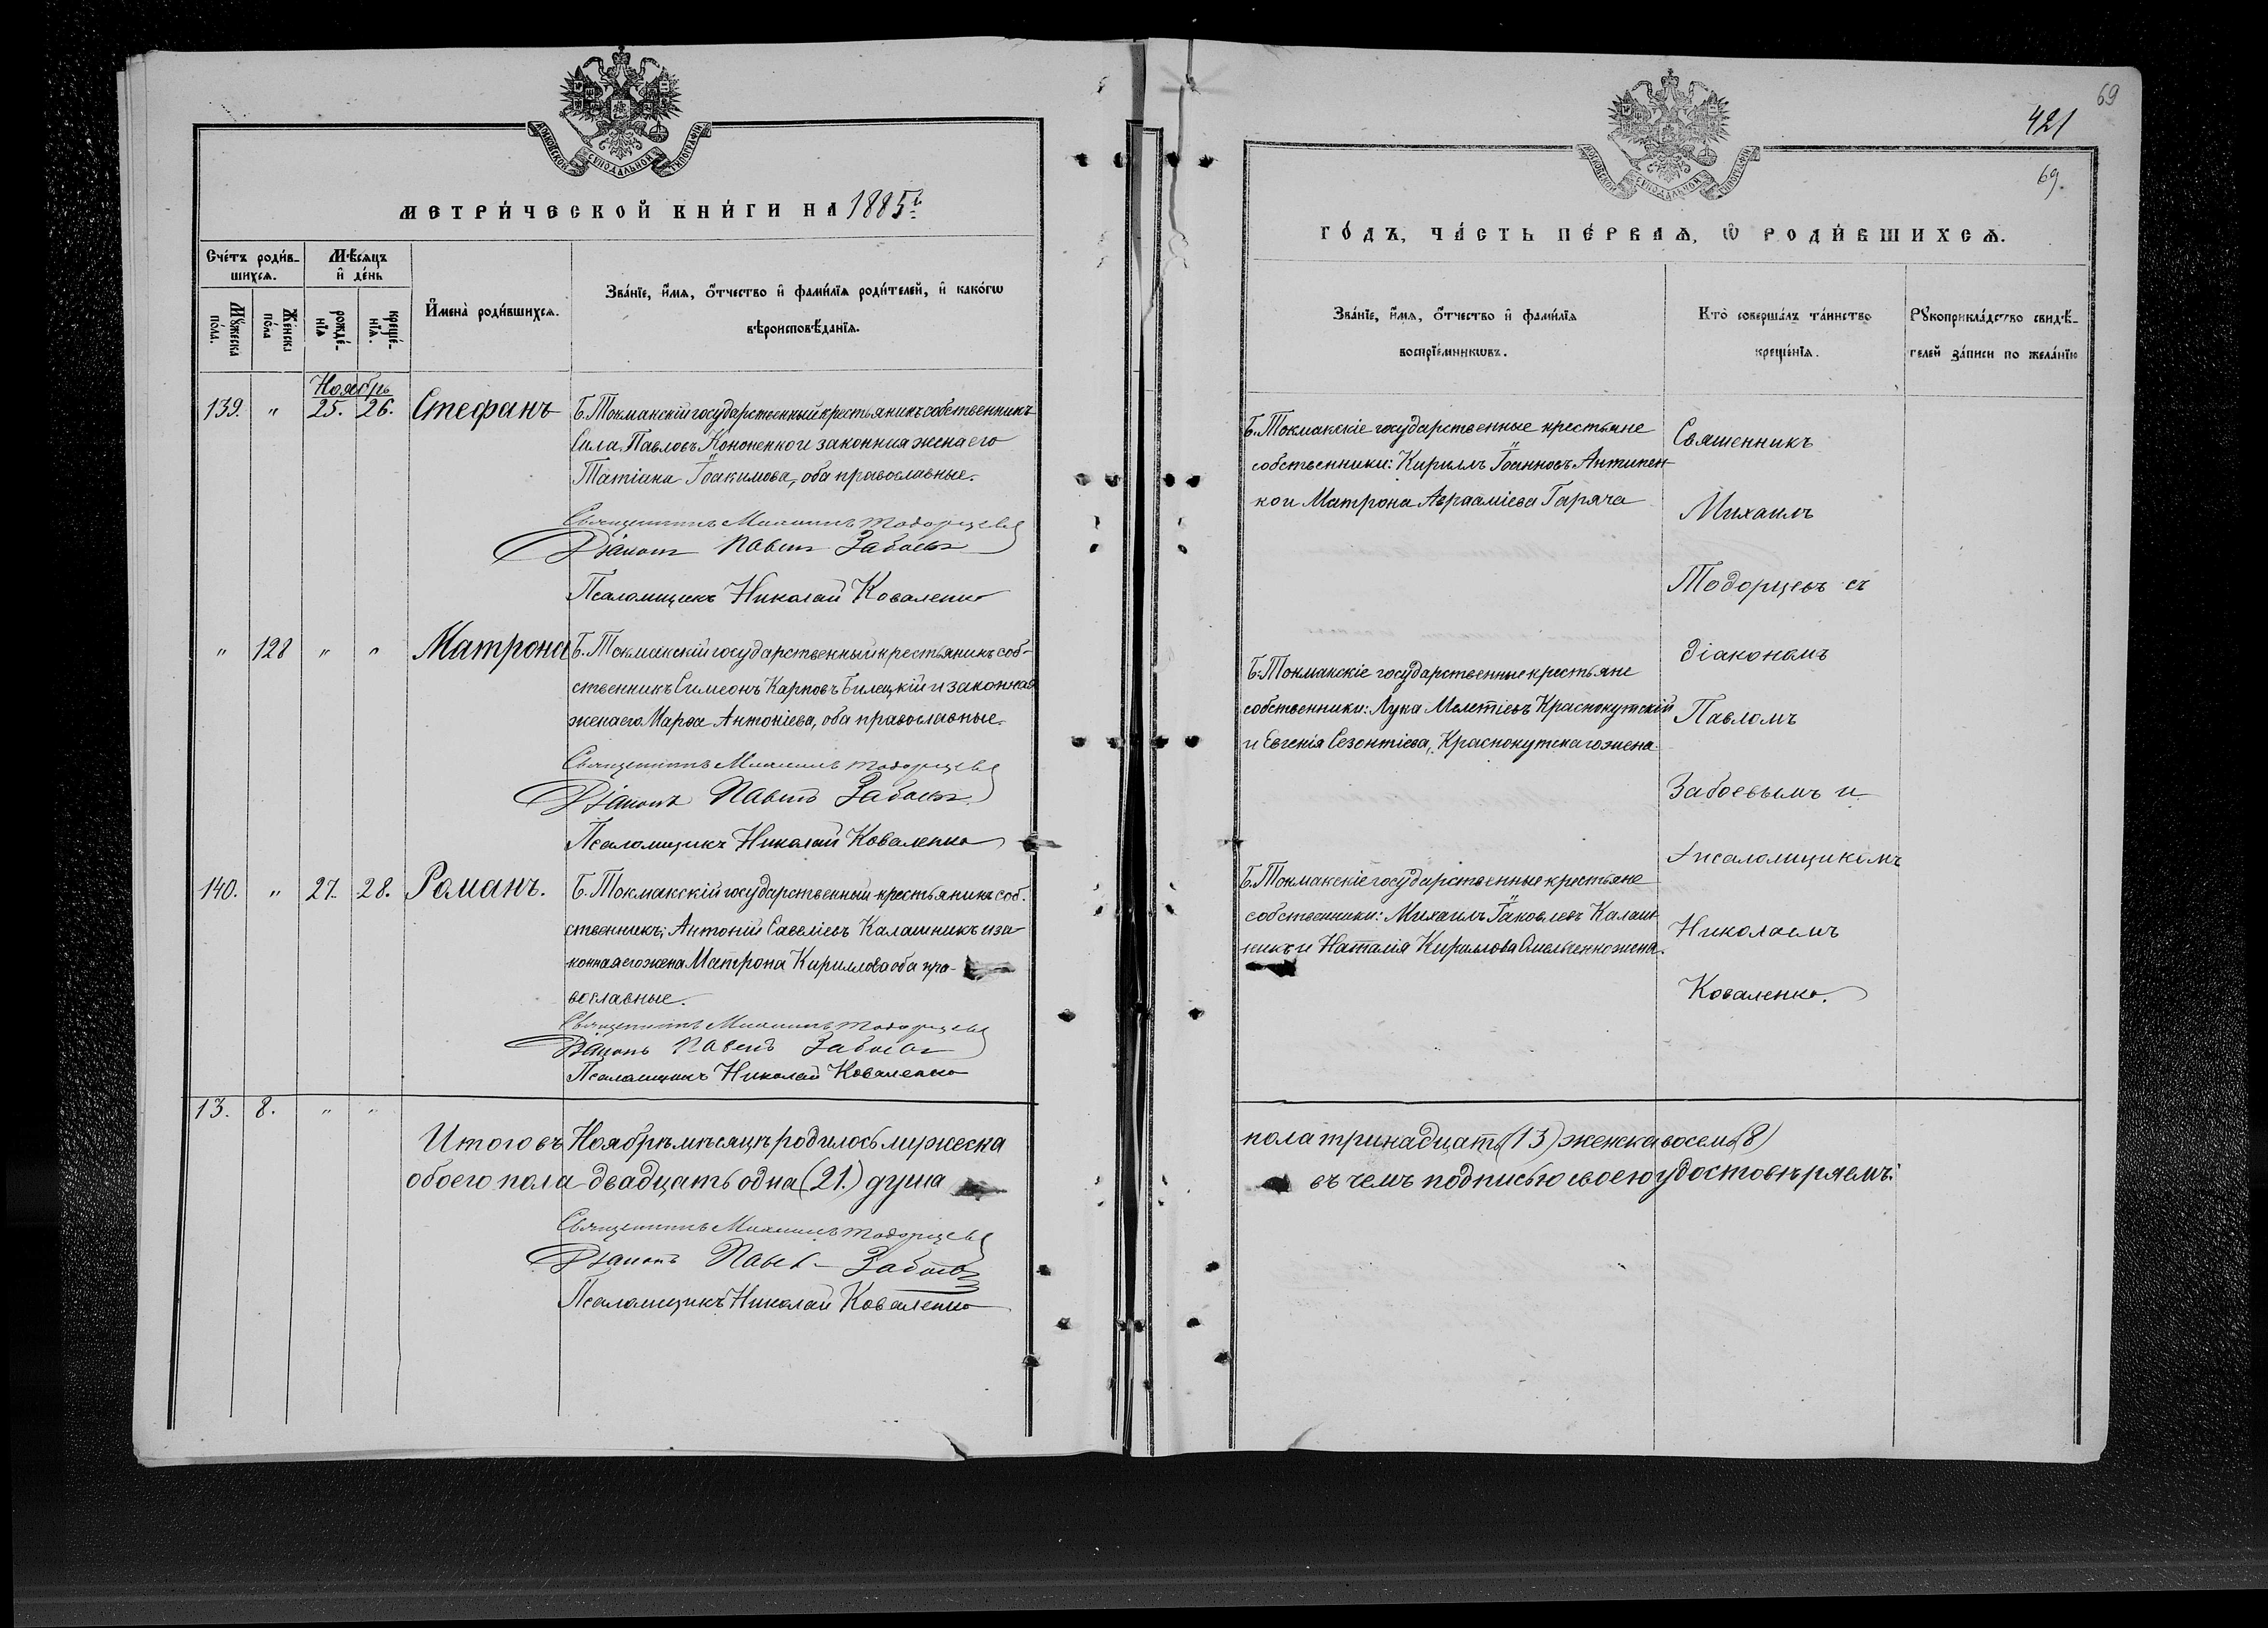 МОСКОВСКОЙ СѴНОДАЛЬНОЙ ТИПОГРАФІИ
МЕТРИ́ЧЕСКОЙ КНИ́ГИ НА 1885й
Сче́тъ роди́в-
шихсѧ.
Мѣ́сѧцъ
и҆ де́нь
Мꙋ́жеска
по́ла.
Же́нска
по́ла
рожде́-
нїѧ
креще́-
нїѧ.
И҆мена̀ роди́вшихсѧ.
Зва́нїе, и҆́мѧ, ѻ҆́тчество и҆ фами́лїѧ роди́телей, и҆ како́гѡ
вѣроисповѣ́данїѧ.
Ноябрь
139. " 25. 26. Стефанъ Б. Токмакскій государственный крестьянинъ собственникъ
Сила Павловъ Кононенко и законная жена его
Татіана Іоакимова, оба православные.
Священникъ Михаилъ Тодорцевъ
Діаконъ Павелъ Забоевъ
Псаломщикъ Николай Коваленко
" 128 " " Матрона Б. Токмакскій государственный крестьянинъ соб-
ственникъ Симеонъ Карповъ Билецкій и законная
жена его Марѳа Антоніева, оба православные.
Священникъ Михаилъ Тодорцевъ
Діаконъ Павелъ Забоевъ
Псаломщикъ Николай Коваленко
140. " 27. 28. Романъ. Б. Токмакскій государственный крестьянинъ соб-
ственникъ; Антоній Савеліевъ Калашникъ и за-
конная его жена Матрона Кириллова оба пра-
вославные.
Священникъ Михаилъ Тодорцевъ
Діаконъ Павелъ Забоевъ
Псаломщикъ Николай Коваленко
13. 8. " "
Итого въ Ноябрѣ мѣсяцѣ родилось мужеска
обоего пола двадцать одна (21.) душа
Священникъ Михаилъ Тодорцевъ
Діаконъ Павелъ Забоевъ
Псаломщикъ Николай Коваленко
69
421
69.
МОСКОВСКОЙ СѴНОДАЛЬНОЙ ТИПОГРАФІИ
ГО́ДЪ, ЧА́СТЬ ПЕ́РВАѦ, Ѡ҆ РОДИ́ВШИХСѦ.
Зва́нїе, и҆́мѧ, ѻ҆́тчество и҆ фами́лїѧ
воспрїе́мникѡвъ.
Кто̀ соверша́лъ та́инство
креще́нїѧ.
Рꙋкоприкла́дство свидѣ́-
телей за́писи по жела́нїю
Б. Токмакскіе государственные крестьяне
собственники: Кириллъ Іоанновъ Антипен-
ко и Матрона Авраамієва Гаряча
Б. Токмакскіе государственные крестьяне
собственники: Лука Мелетіевъ Краснокутскій
и Евгенія Сезонтіева, Краснокутскаго жена.
Б. Токмакскіе государственные крестьяне
собственники: Михаилъ Іаковлевъ Калаш-
никъ и Наталія Кириллова Омельченко жена.
Священникъ
Михаилъ
Тодорцевъ съ
діакономъ
Павломъ
Забоевымъ и
псаломщикомъ
Николаемъ
Коваленко.
пола тринадцать (13) женска восемь (8)
въ чемъ подписью своею удостовѣряемъ: